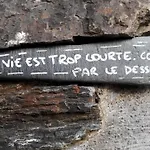 VIE EST TROP COURTE. CO
PAR LE DESS